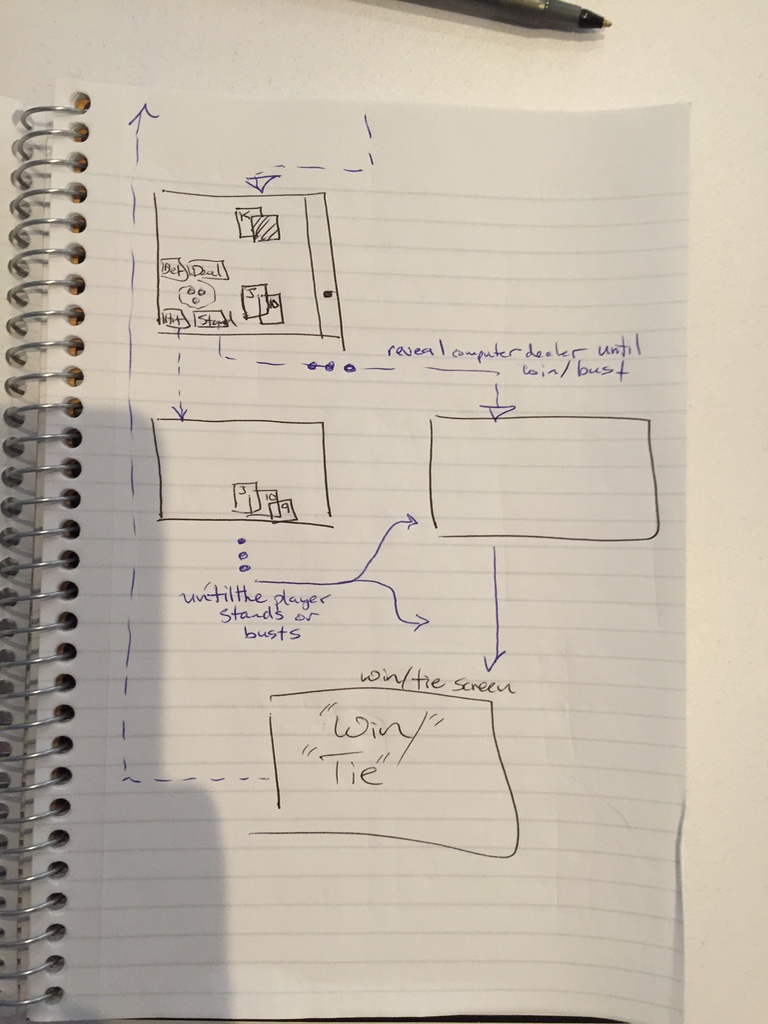 K
Bet Deal
J 10
Hit Stand
reveal computer dealer until
win/bust
J 10 9
until the player
stands or
busts
win/tie screen
"Win/"
"Tie"